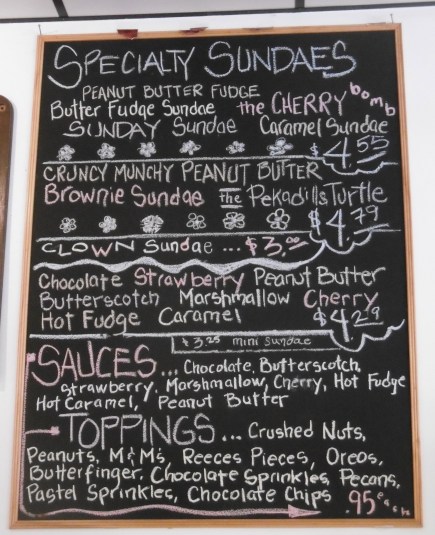 SPECIALTY SUNDAES
PEANUT BUTTER FUDGE
Butter Fudge Sundae the CHERRY bomb
SUNDAY Sundae Caramel Sundae
$4.55
CRUNCY MUNCHY PEANUT BUTTER
Brownie Sundae the Pekadills Turtle
$4.79
CLOWN Sundae ... $3.00
Chocolate Strawberry Peanut Butter
Butterscotch Marshmallow Cherry
Hot Fudge Caramel $4.29
$3.25 mini sundae
SAUCES... Chocolate, Butterscotch,
Strawberry, Marshmallow, Cherry, Hot Fudge
Hot Caramel, Peanut Butter
TOPPINGS... Crushed Nuts,
Peanuts, M&M's, Reeces Pieces, Oreos,
Butterfinger, Chocolate Sprinkles, Pecans,
Pastel Sprinkles, Chocolate Chips .95 each